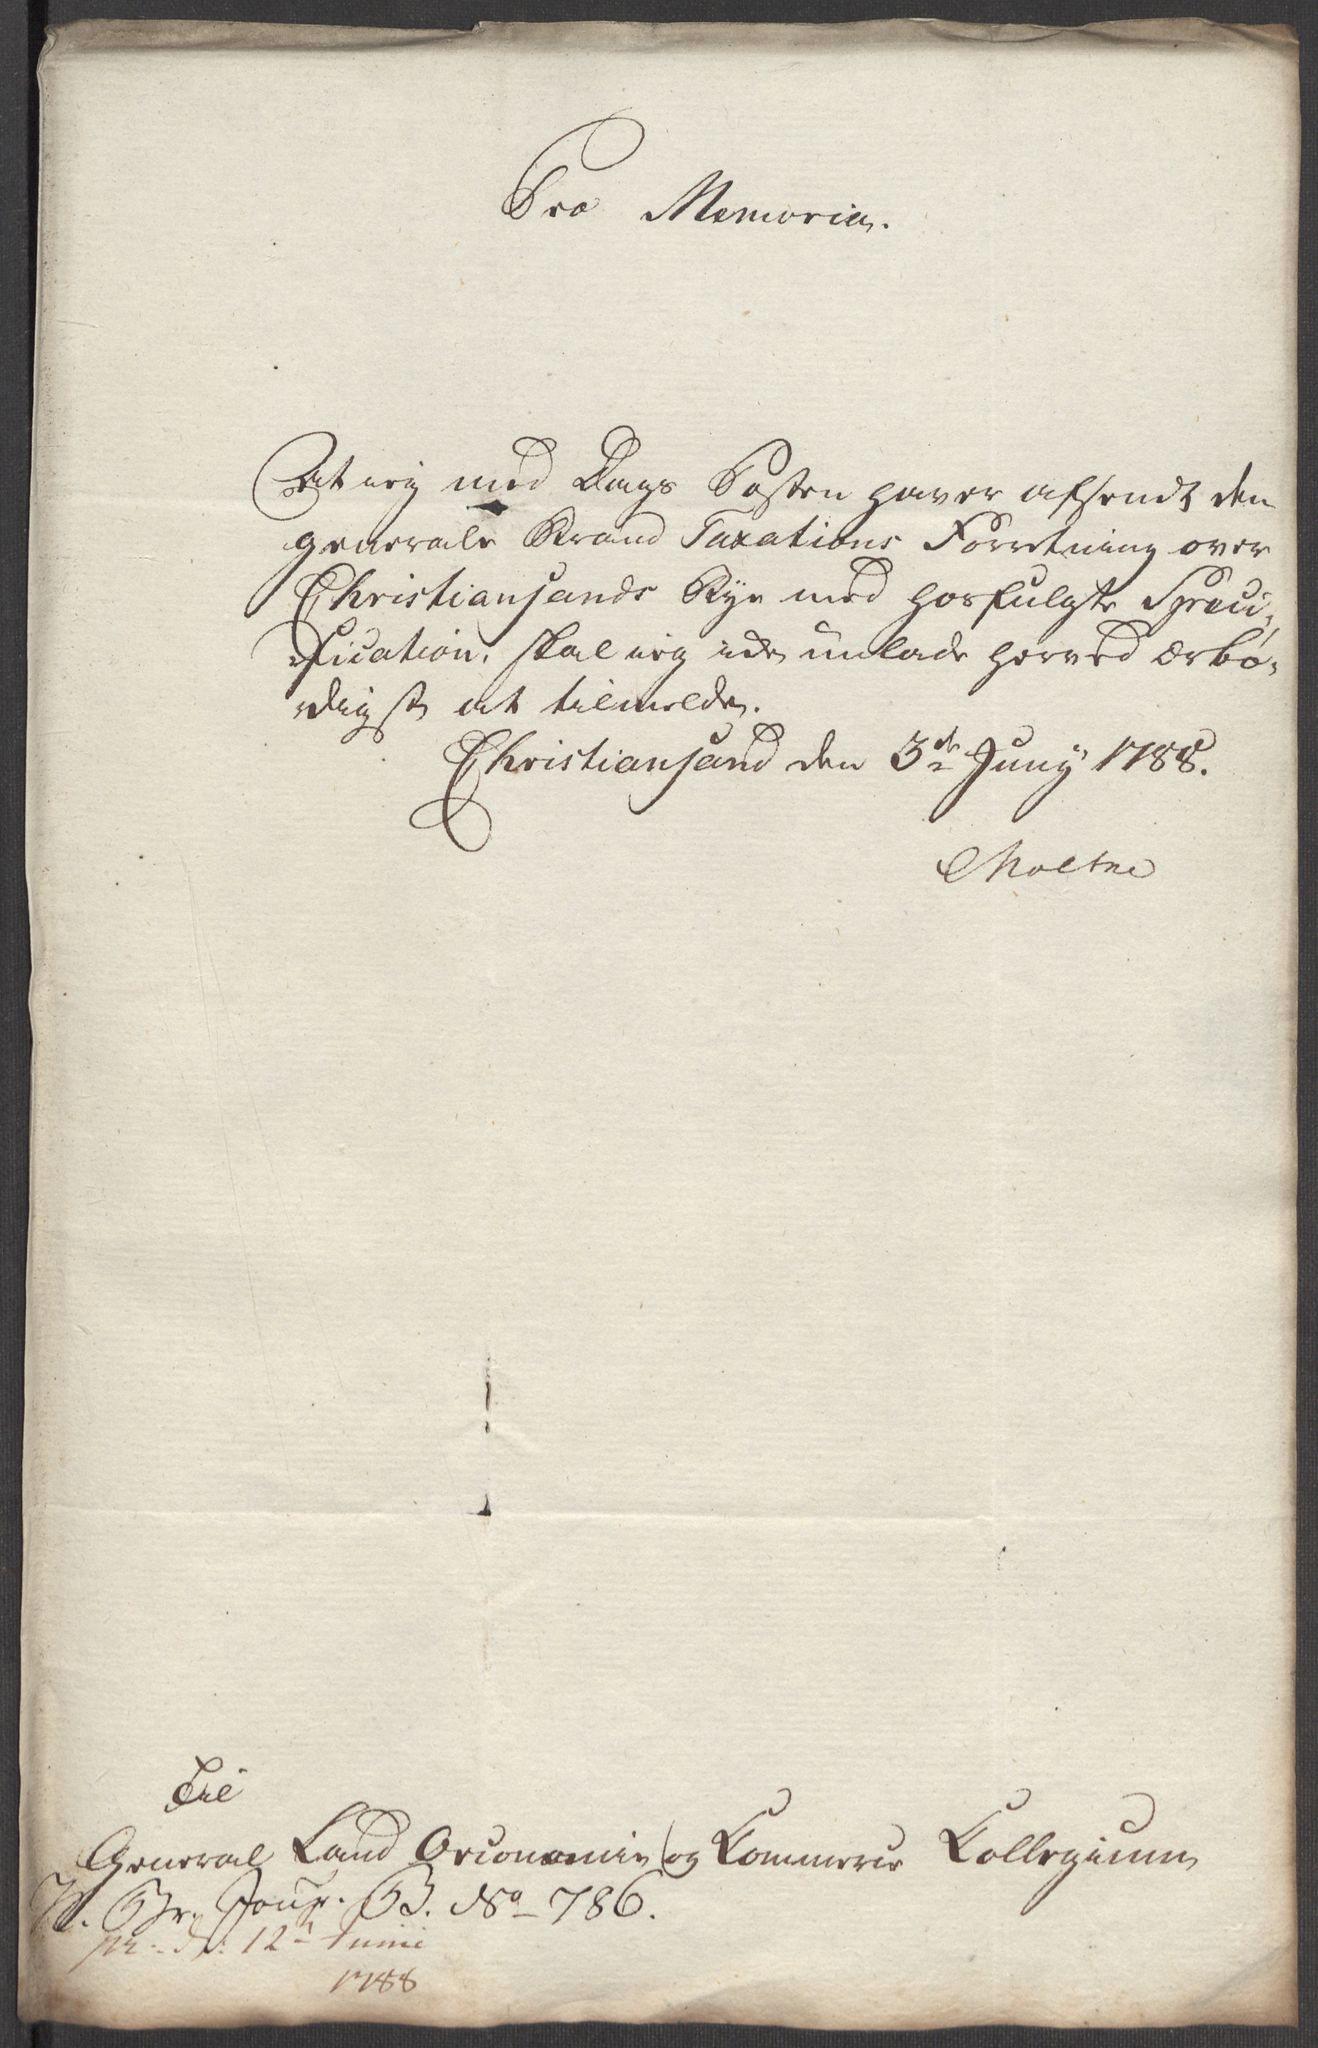 Pro Memoria.
At ieg med Dags Posten haver afsendt den
generale Brand Taxations Forretning over
Christiansands Bye med hosfulgte Speci-
fication, skal ieg icke unlade herved ærbø-
digst at tilmelde.
Christiansand den 3de Juny 1788.
Moltke
Til
General Land Oeconomie og Commerce Collegium
N. Br. Jour. B. No 786.
pr. d: 12n Junii
1788